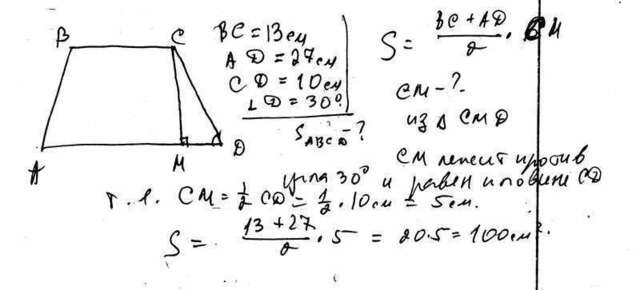 B C
A M D
BC = 13см
AD = 27см
CD = 10см
∠D = 30°
S ABCD - ?
S = BC + AD / 2 · CM
CM - ?
из Δ CMD
CM лежит против
угла 30° и равен половине CD
т. е. CM = 1/2 CD = 1/2 · 10см = 5см.
S = 13 + 27 / 2 · 5 = 20·5 = 100см².